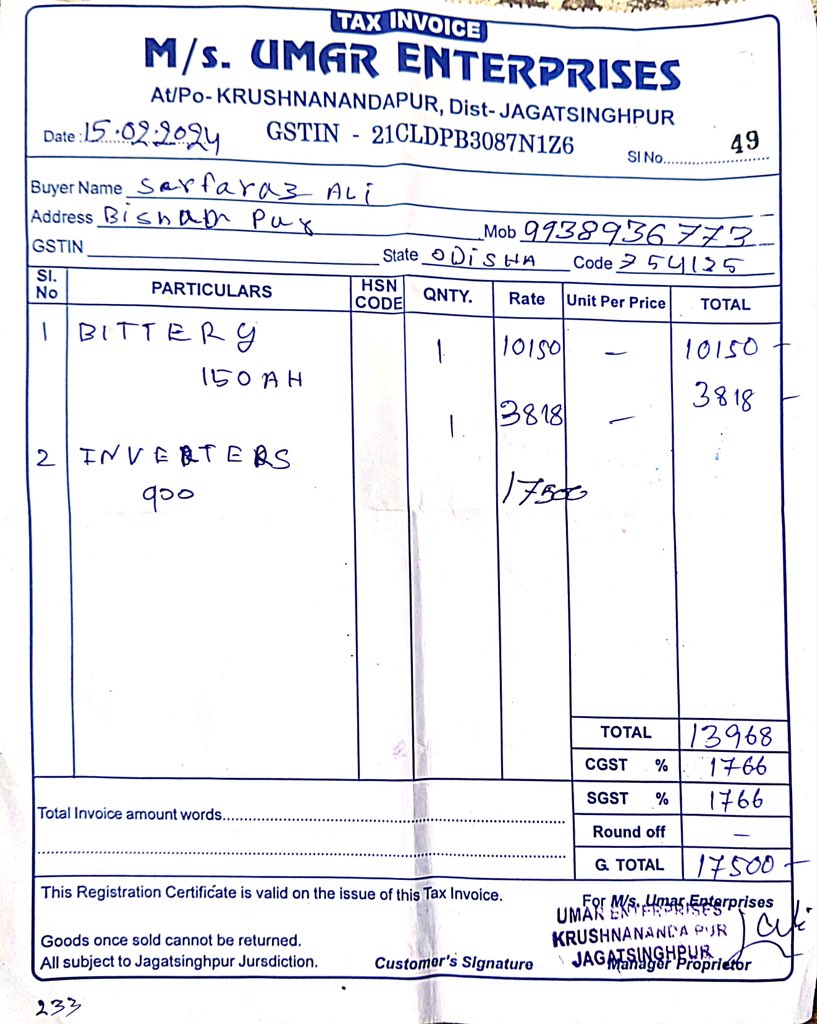 TAX INVOICE
M/s. UMAR ENTERPRISES
At/Po- KRUSHNANANDAPUR, Dist- JAGATSINGHPUR
Date : 15.02.2024 GSTIN - 21CLDPB3087N1Z6 Sl No. 49
Buyer Name Sarfaraz ALi
Address Bishan Pur Mob 9938936773
GSTIN State ODiSHA Code 754125
Sl. No PARTICULARS HSN CODE QNTY. Rate Unit Per Price TOTAL
1 BITTERY 1 10150 – 10150 –
150AH 1 3818 – 3818 –
2 INVERTERS
900 17500
TOTAL 13968
CGST % 1766
SGST % 1766
Total Invoice amount words
Round off –
G. TOTAL 17500 –
This Registration Certificate is valid on the issue of this Tax Invoice. For M/s. Umar Enterprises
UMAR ENTERPRISES
KRUSHNANANDA PUR
JAGATSINGHPUR
Goods once sold cannot be returned.
All subject to Jagatsinghpur Jursdiction. Customer's Signature Manager Proprietor
233